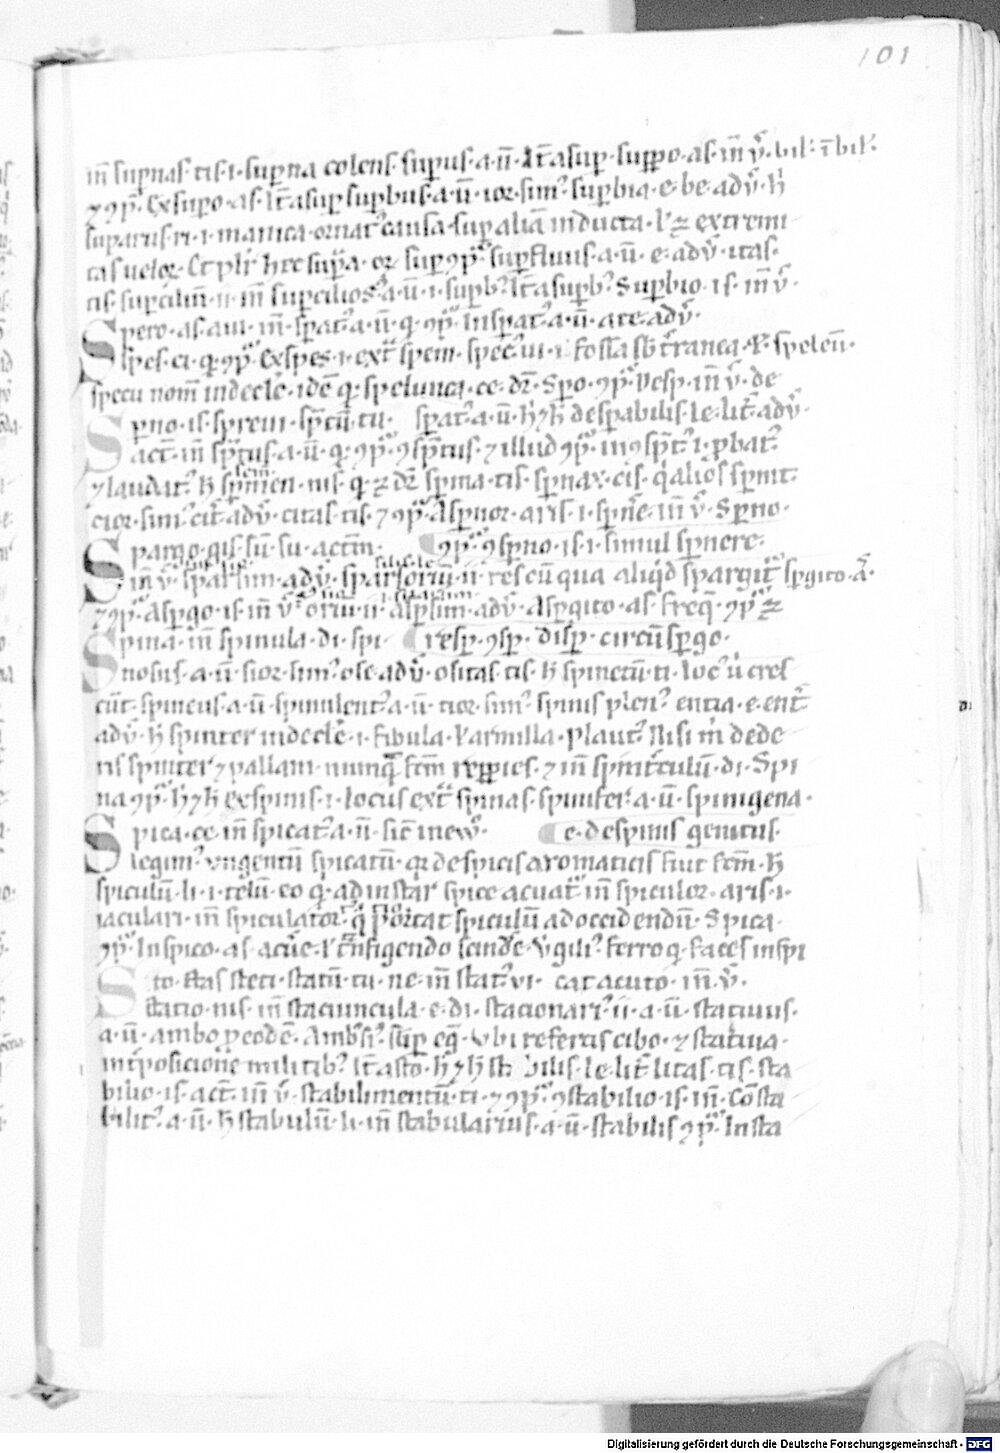 101
in̄ suꝑnas·tis·i·suꝑna colens·suꝑus·a·ū·It̄ a suꝑ·suꝑo·as·in̄ v̄·bil'·
⁊ ꝯp̄·Exsuꝑo·as·It̄ a suꝑ suꝑbus·a·ū·ior·sim᷒·suꝑbia·e·be·adv̄·h̄
suparus·ri·i·manica·ornat᷒ causa·suꝑ aliam inducta·l' extremi
tas uelor·Et pl'r hec supꝑa·or suꝑ ꝯp̄·suꝑfluus·a·ū·e·adv̄·itas·
tis·suꝑciliū·ii·in̄ suꝑcilios᷒·a·ū·i·suꝑb᷒·It̄ a suꝑb᷒ Suꝑbio·is·in̄ v̄·
Spero·as·aui·in̄·sꝑat᷒·a·ū·q̄·ꝯp̄·Insꝑat᷒·a·ū·ate·adv̄·
Spes·ei·q̄·ꝯp̄·Exspes·i·ext̄ spem·spec᷒ ui·i·fossa sb̄t̄ranea·speleū·
specu nom̄ indecle·idē q̄·spelunca·ce·dr̄·Spo·ꝯp̄·Vesp·in̄ v̄·de
Sꝑno·is·spreui·sp̄tū·tu· sꝑat᷒·a·ū·h̄⁊h̄ desꝑabilis·le·lit̄ adv̄·
act̄·in̄ sp̄tus·a·ū·q̄·ꝯp̄·ꝯsp̄tus·⁊ illud ꝯp̄·inꝯsp̄t᷒·i·ꝓbat᷒
⁊ laudat᷒ h̄ sꝑmen·nis·q̄·⁊ dr̄ sꝑma·tis·sꝑnax·cis·q̄ alios sꝑnit·
cior·sim᷒ cit̄ adv̄·citas·tis·⁊ ꝯp̄·Asꝑnor·aris·i·sꝑne·in̄ v̄·Sꝑno·
Spargo·gis·sū·su·actin̄· ꝯp̄·ꝯsꝑno·is·i·simul sꝑnere·
in̄ v̄ sparsim·adv̄·sparsoriū·ii·res cū qua aliq̄d spargit᷒ sꝑgito·a̅·
⁊ ꝯp̄·Asꝑgo·is·in̄ v̄ oriū·ii·asꝑsim·adv̄·Asꝑgito·as·freq̄·ꝯp̄·
Spina·in̄ spinula·di·spi resꝑ·ꝯsꝑ·disꝑ·circūsꝑgo·
nosus·a·ū·sior·sim᷒·ose·adv̄·ositas·tis·h̄ spinetū·ti·loc᷒ u cres
cūt·spineus·a·ū·spinulent᷒·a·ū·tior·sim᷒·spinis plen᷒ entia·e·ent̄
adv̄·h̄ spinter indecle·i·fibula·l' armilla·Plaut᷒ Nisi m̄ dede
ris spinter ⁊ pallam·nunq̄ fc̄m repꝑies·⁊ in̄ spint̄culū·di·Spi
na ꝯp̄·h̄⁊h̄ exspinis·i·locus ext̄ spinas·spinifer·a·ū·spinigena·
Spica·ce·in̄ spicat᷒·a·ū·sic̄ in ew̄· e·de spinis genitus·
legim᷒ vngentū spicatū·q̄ de spicis aromaticis fiut fc̄m·h̄
spiculū·li·i·telū·eo q̄·ad instar spice acuat᷒ in̄ spiculor·aris·i·
iaculari·in̄ spiculator·q̄ portat spiculū ad occidendū·Spica·
ꝯp̄·Inspico·as·acūe·l' c̄nfigendo scinde·v̄gili᷒·ferroq̄·faces inspi
Sto·stas steti·statū·tu·ne·in̄ stat᷒ vi· cat acuto·in̄ v̄·
statio·nis·in̄ staciuncula·e·di·stacionari᷒·ii·a·ū·statiuus·
a·ū·ambo ꝑ eodē·Ambsi᷒·sup̄ eq̄·Vbi refertis cibo·⁊ statiua·
int̄posicione militib᷒ It̄ a sto·h̄⁊h̄ sta bilis·le·lit̄ litas·tis·sta
bilio·is·act̄·in̄ v̄·stabilimentū·ti·⁊ ꝯp̄·ꝯstabilio·is·in̄·Cōsta
bilit᷒·a·ū·h̄ stabulū·li·in̄ stabularius·a·ū·stabilis ꝯp̄·Insta
Digitalisierung gefördert durch die Deutsche Forschungsgemeinschaft - DFG